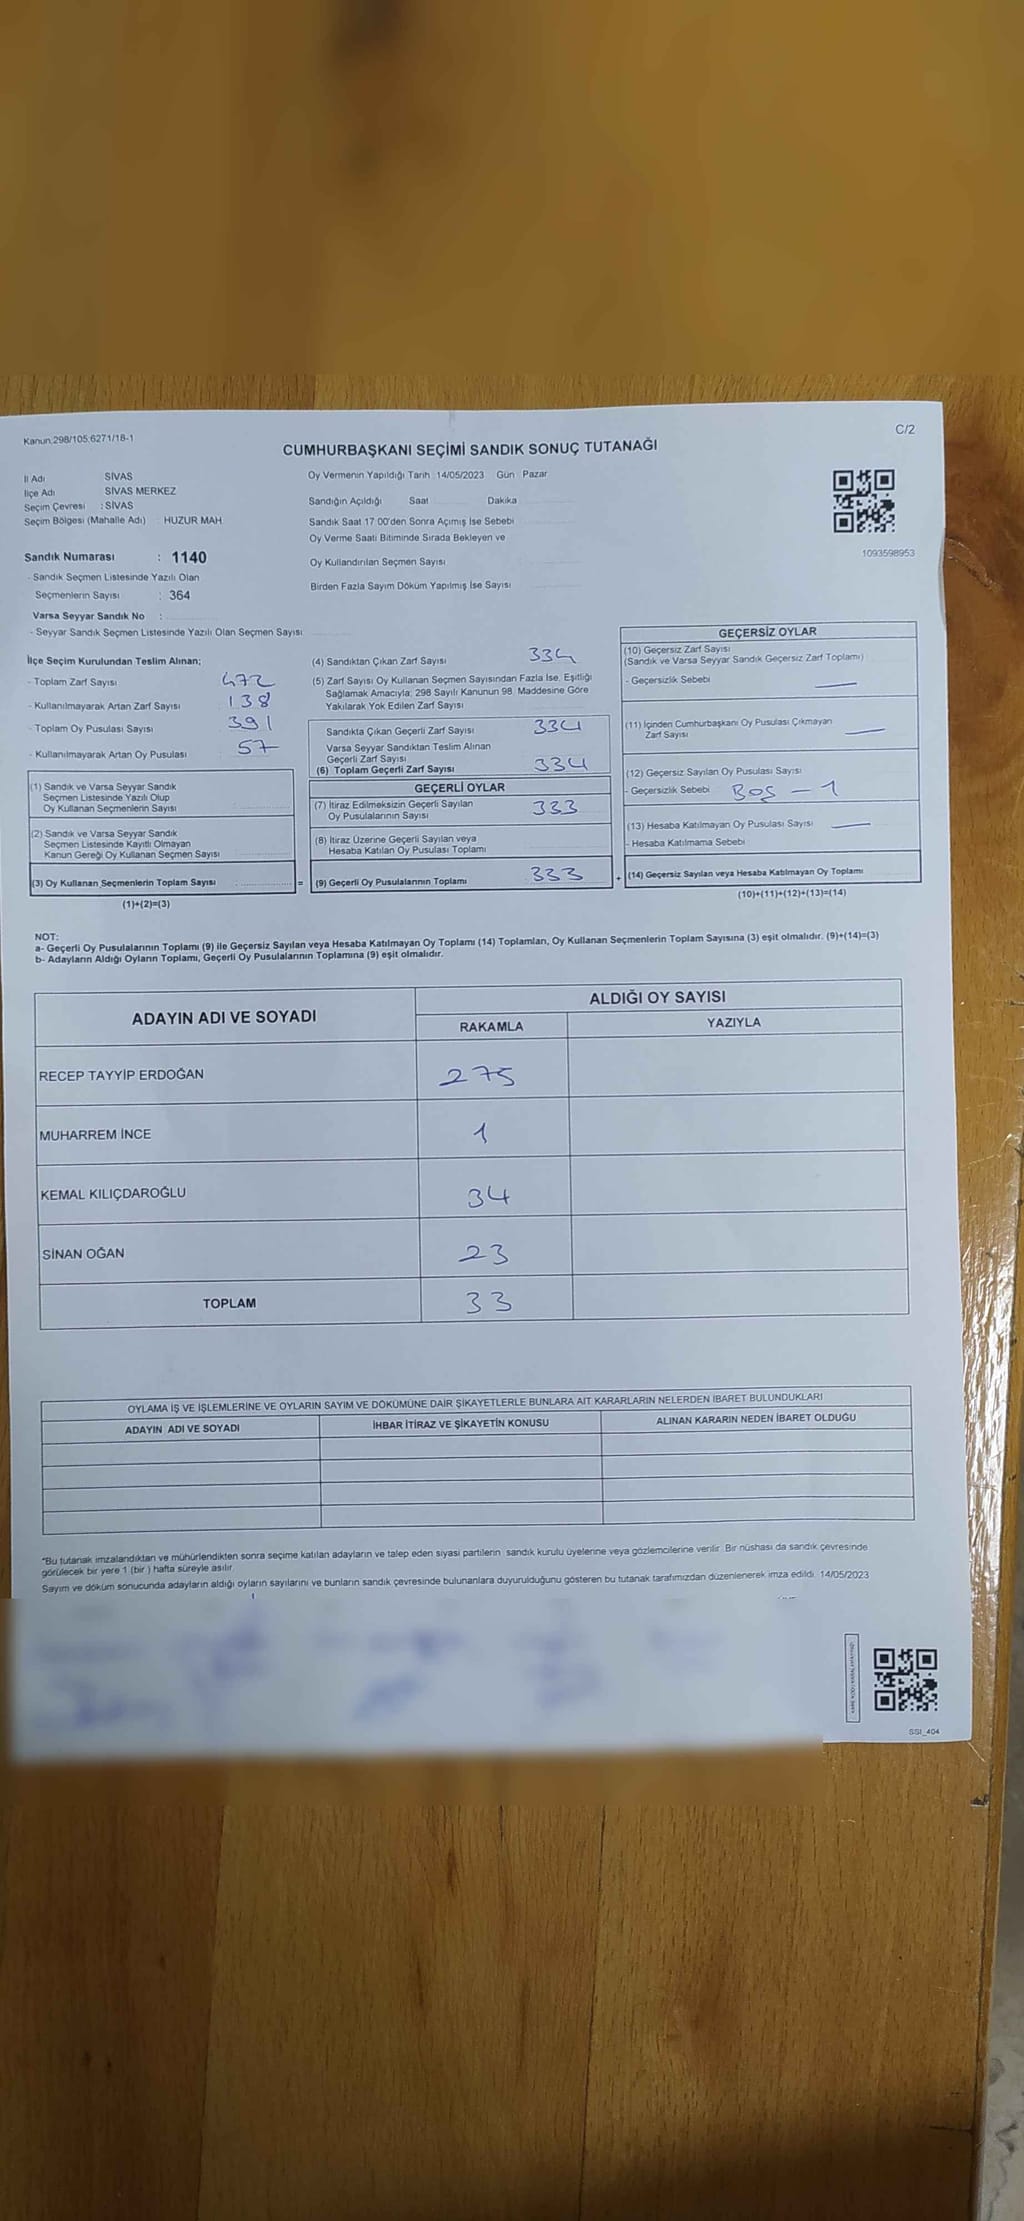 Kanun:298/105:6271/18-1
C/2
CUMHURBAŞKANI SEÇİMİ SANDIK SONUÇ TUTANAĞI
İl Adı SİVAS
İlçe Adı SİVAS MERKEZ
Seçim Çevresi : SİVAS
Seçim Bölgesi (Mahalle Adı) HUZUR MAH.
Oy Vermenin Yapıldığı Tarih : 14/05/2023 Gün : Pazar
Sandığın Açıldığı Saat Dakika
Sandık Saat 17:00'den Sonra Açımış İse Sebebi
Oy Verme Saati Bitiminde Sırada Bekleyen ve
Oy Kullandırılan Seçmen Sayısı
Birden Fazla Sayım Döküm Yapılmış İse Sayısı
1093598953
Sandık Numarası : 1140
- Sandık Seçmen Listesinde Yazılı Olan
Seçmenlerin Sayısı : 364
Varsa Seyyar Sandık No :
- Seyyar Sandık Seçmen Listesinde Yazılı Olan Seçmen Sayısı
İlçe Seçim Kurulundan Teslim Alınan;
- Toplam Zarf Sayısı 472
- Kullanılmayarak Artan Zarf Sayısı 138
- Toplam Oy Pusulası Sayısı 391
- Kullanılmayarak Artan Oy Pusulası 57
(1) Sandık ve Varsa Seyyar Sandık
Seçmen Listesinde Yazılı Olup
Oy Kullanan Seçmenlerin Sayısı
(2) Sandık ve Varsa Seyyar Sandık
Seçmen Listesinde Kayıtlı Olmayan
Kanun Gereği Oy Kullanan Seçmen Sayısı
(3) Oy Kullanan Seçmenlerin Toplam Sayısı :
=
(1)+(2)=(3)
(4) Sandıktan Çıkan Zarf Sayısı 334
(5) Zarf Sayısı Oy Kullanan Seçmen Sayısından Fazla İse, Eşitliği
Sağlamak Amacıyla; 298 Sayılı Kanunun 98. Maddesine Göre
Yakılarak Yok Edilen Zarf Sayısı
Sandıkta Çıkan Geçerli Zarf Sayısı 334
Varsa Seyyar Sandıktan Teslim Alınan
Geçerli Zarf Sayısı
(6) Toplam Geçerli Zarf Sayısı 334
GEÇERLİ OYLAR
(7) İtiraz Edilmeksizin Geçerli Sayılan
Oy Pusulalarının Sayısı 333
(8) İtiraz Üzerine Geçerli Sayılan veya
Hesaba Katılan Oy Pusulası Toplamı
(9) Geçerli Oy Pusulalarının Toplamı 333
+
GEÇERSİZ OYLAR
(10) Geçersiz Zarf Sayısı
(Sandık ve Varsa Seyyar Sandık Geçersiz Zarf Toplamı)
- Geçersizlik Sebebi —
(11) İçinden Cumhurbaşkanı Oy Pusulası Çıkmayan
Zarf Sayısı —
(12) Geçersiz Sayılan Oy Pusulası Sayısı
- Geçersizlik Sebebi Boş – 1
(13) Hesaba Katılmayan Oy Pusulası Sayısı —
- Hesaba Katılmama Sebebi
(14) Geçersiz Sayılan veya Hesaba Katılmayan Oy Toplamı
(10)+(11)+(12)+(13)=(14)
NOT:
a- Geçerli Oy Pusulalarının Toplamı (9) ile Geçersiz Sayılan veya Hesaba Katılmayan Oy Toplamı (14) Toplamları, Oy Kullanan Seçmenlerin Toplam Sayısına (3) eşit olmalıdır. (9)+(14)=(3)
b- Adayların Aldığı Oyların Toplamı, Geçerli Oy Pusulalarının Toplamına (9) eşit olmalıdır.
ADAYIN ADI VE SOYADI ALDIĞI OY SAYISI
RAKAMLA YAZIYLA
RECEP TAYYİP ERDOĞAN 275
MUHARREM İNCE 1
KEMAL KILIÇDAROĞLU 34
SİNAN OĞAN 23
TOPLAM 33
OYLAMA İŞ VE İŞLEMLERİNE VE OYLARIN SAYIM VE DÖKÜMÜNE DAİR ŞİKAYETLERLE BUNLARA AİT KARARLARIN NELERDEN İBARET BULUNDUKLARI
ADAYIN ADI VE SOYADI İHBAR İTİRAZ VE ŞİKAYETİN KONUSU ALINAN KARARIN NEDEN İBARET OLDUĞU
"Bu tutanak imzalandıktan ve mühürlendikten sonra seçime katılan adayların ve talep eden siyasi partilerin sandık kurulu üyelerine veya gözlemcilerine verilir. Bir nüshası da sandık çevresinde
görülecek bir yere 1 (bir ) hafta süreyle asılır.
Sayım ve döküm sonucunda adayların aldığı oyların sayılarını ve bunların sandık çevresinde bulunanlara duyurulduğunu gösteren bu tutanak tarafımızdan düzenlenerek imza edildi. 14/05/2023
SSI_404